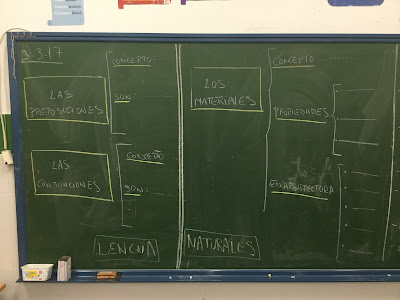 3-3-17
LAS
PREPOSICIONES
CONCEPTO:
SON:
LAS
CONJUNCIONES
CONCEPTO:
SON:
LENGUA
LOS
MATERIALES
CONCEPTO:
PROPIEDADES
NATURALES